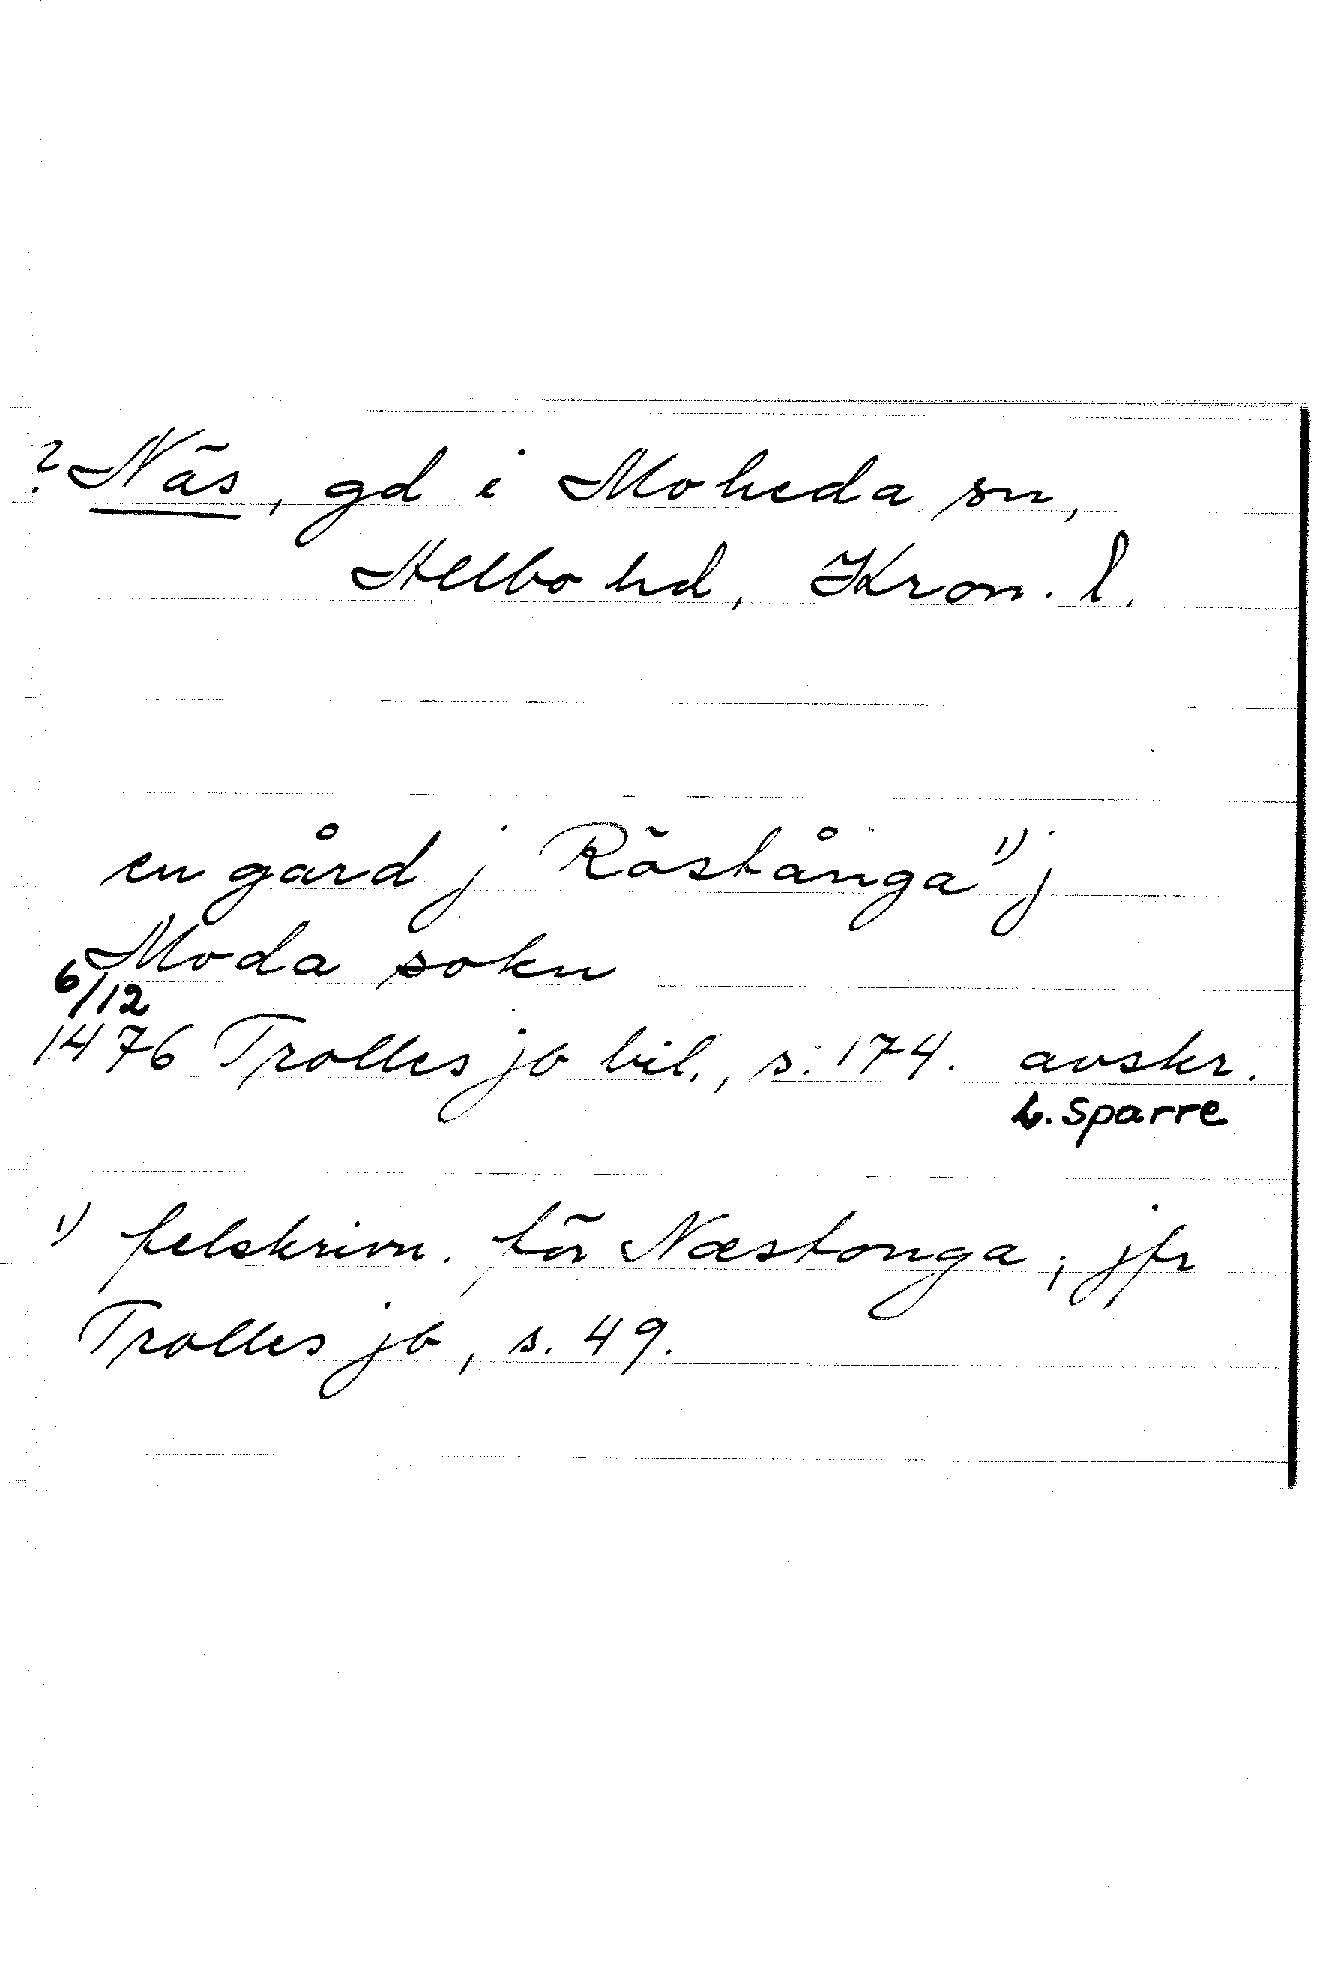 ? Näs, gd i Moheda sn,
Allbo hd, Kron. l.
en gård j Röstånga 1) j
Moda sokn
6/12
1476 Trolles jb bil., s. 174. avskr.
L. Sparre
1) felskrivn. för Næstonga, jfr
Trolles jb, s. 49.